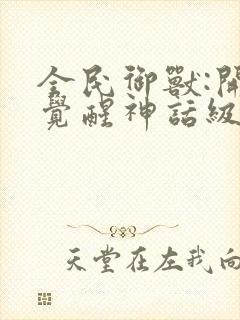 全民御獸:開
覺醒神話級
天堂在左我向